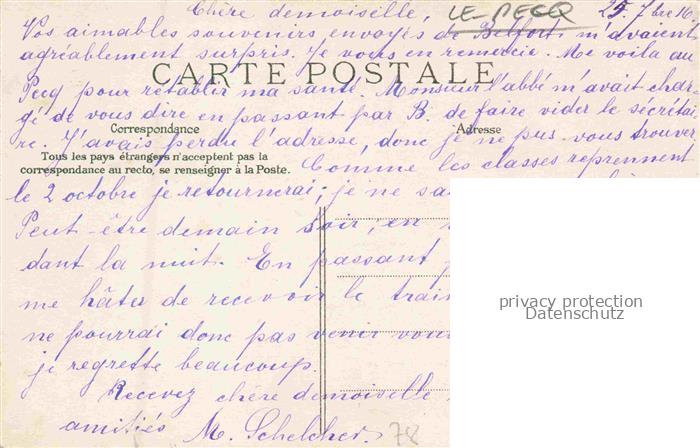 Chère demoiselle, LE-PECQ 25. 7bre 16
Vos aimables souvenirs envoyés de Belfort m'avaient
agréablement surpris. Je vous en remercie. Me voila au
CARTE POSTALE
Pecq pour rétablir ma santé. Monsieur l'abbé m'avait char-
gé de vous dire en passant par B. de faire vider le sécrétai-
Correspondance Adresse
re. J'avais perdu l'adresse, donc je ne pus vous trouver
Tous les pays étrangers n'acceptent pas la
correspondance au recto, se renseigner à la Poste.
Comme les classes reprennent
le 2 octobre je retournerai; je ne
Peut-être demain soir, en
dant la nuit. En passant
me hâter de recevoir le train
ne pourrai donc pas venir
je regrette beaucoup.
Recevez chère demoiselle
amitiés M. Schelcher.
78
privacy protection
Datenschutz